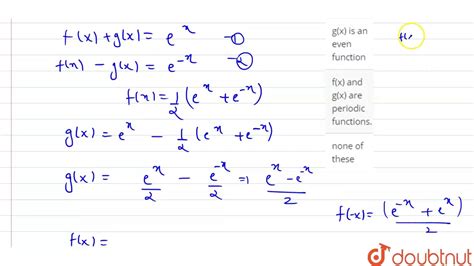 f(x) + g(x) = e^x —①
f(x) − g(x) = e^−x —②
f(x) = 1/2 (e^x + e^−x)
g(x) = e^x − 1/2 (e^x + e^−x)
g(x) = e^x/2 − e^−x/2 ⇒ e^x − e^−x/2
f(x) =
f(−x) = (e^−x + e^x)/2
g(x) is an
even
function
f(x) and
g(x) are
periodic
functions.
none of
these
f(x
doubtnut